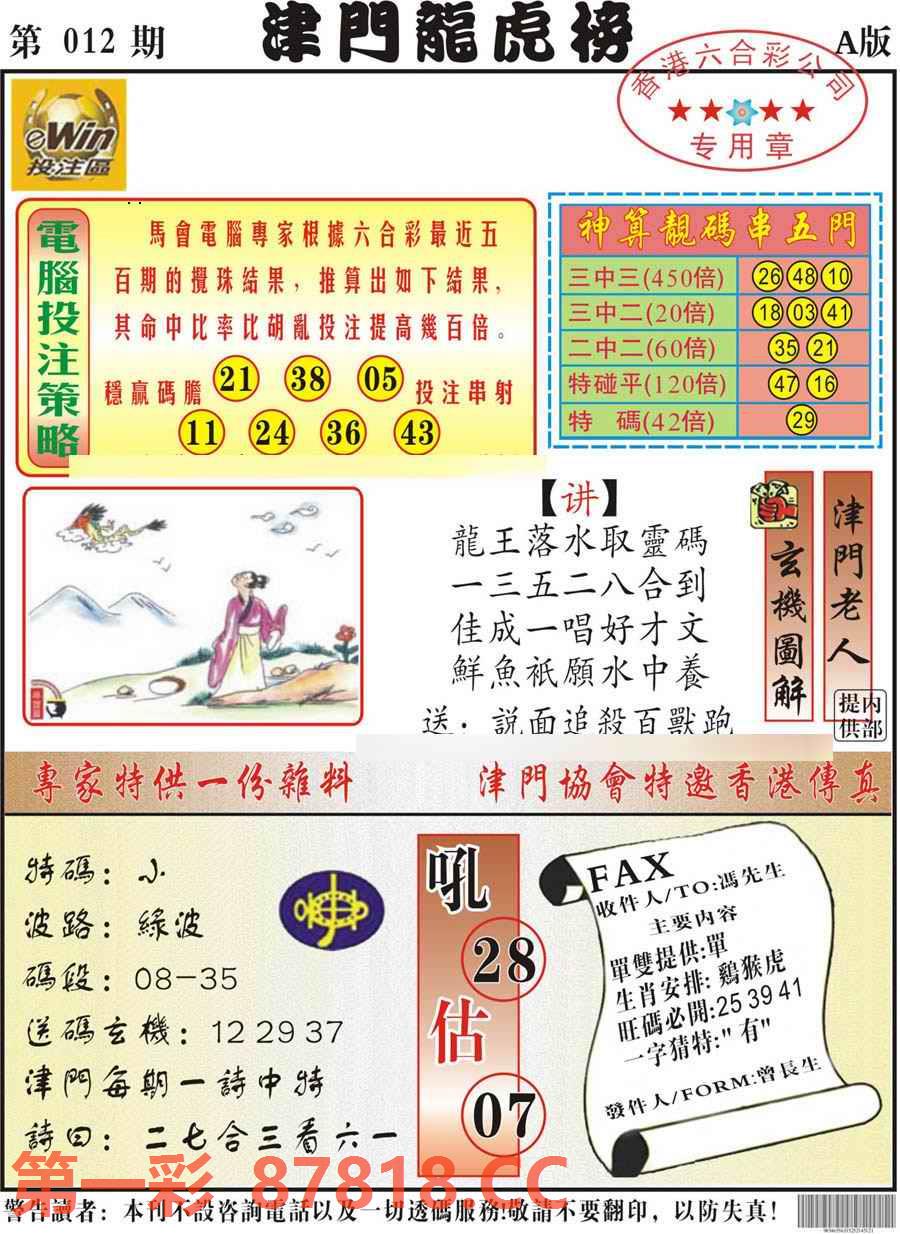 第 012 期
津門龍虎榜
A版
香港六合彩公司
专用章
eWin
投注區
電腦投注策略
馬會電腦專家根據六合彩最近五
百期的攪珠結果，推算出如下結果，
其命中比率比胡亂投注提高幾百倍。
穩贏碼膽 21 38 05 投注串射
11 24 36 43
神算靚碼串五門
三中三(450倍) 26 48 10
三中二(20倍) 18 03 41
二中二(60倍) 35 21
特碰平(120倍) 47 16
特 碼(42倍) 29
【讲】
龍王落水取靈碼
一三五二八合到
佳成一唱好才文
鮮魚衹願水中養
送：説面追殺百獸跑
玄機圖解
津門老人
内部提供
專家特供一份雜料
津門協會特邀香港傳真
特碼：小
波路：綠波
碼段：08-35
送碼玄機：12 29 37
津門每期一詩中特
詩曰：二七合三看六一
吼
28
估
07
FAX
收件人/TO:馮先生
主要内容
單雙提供:單
生肖安排: 鷄猴虎
旺碼必開:25 39 41
一字猜特:"有"
發件人/FORM:曾長生
第一彩 87818.CC
警告讀者：本刊不設咨詢電話以及一切透碼服務!敬請不要翻印，以防失真!